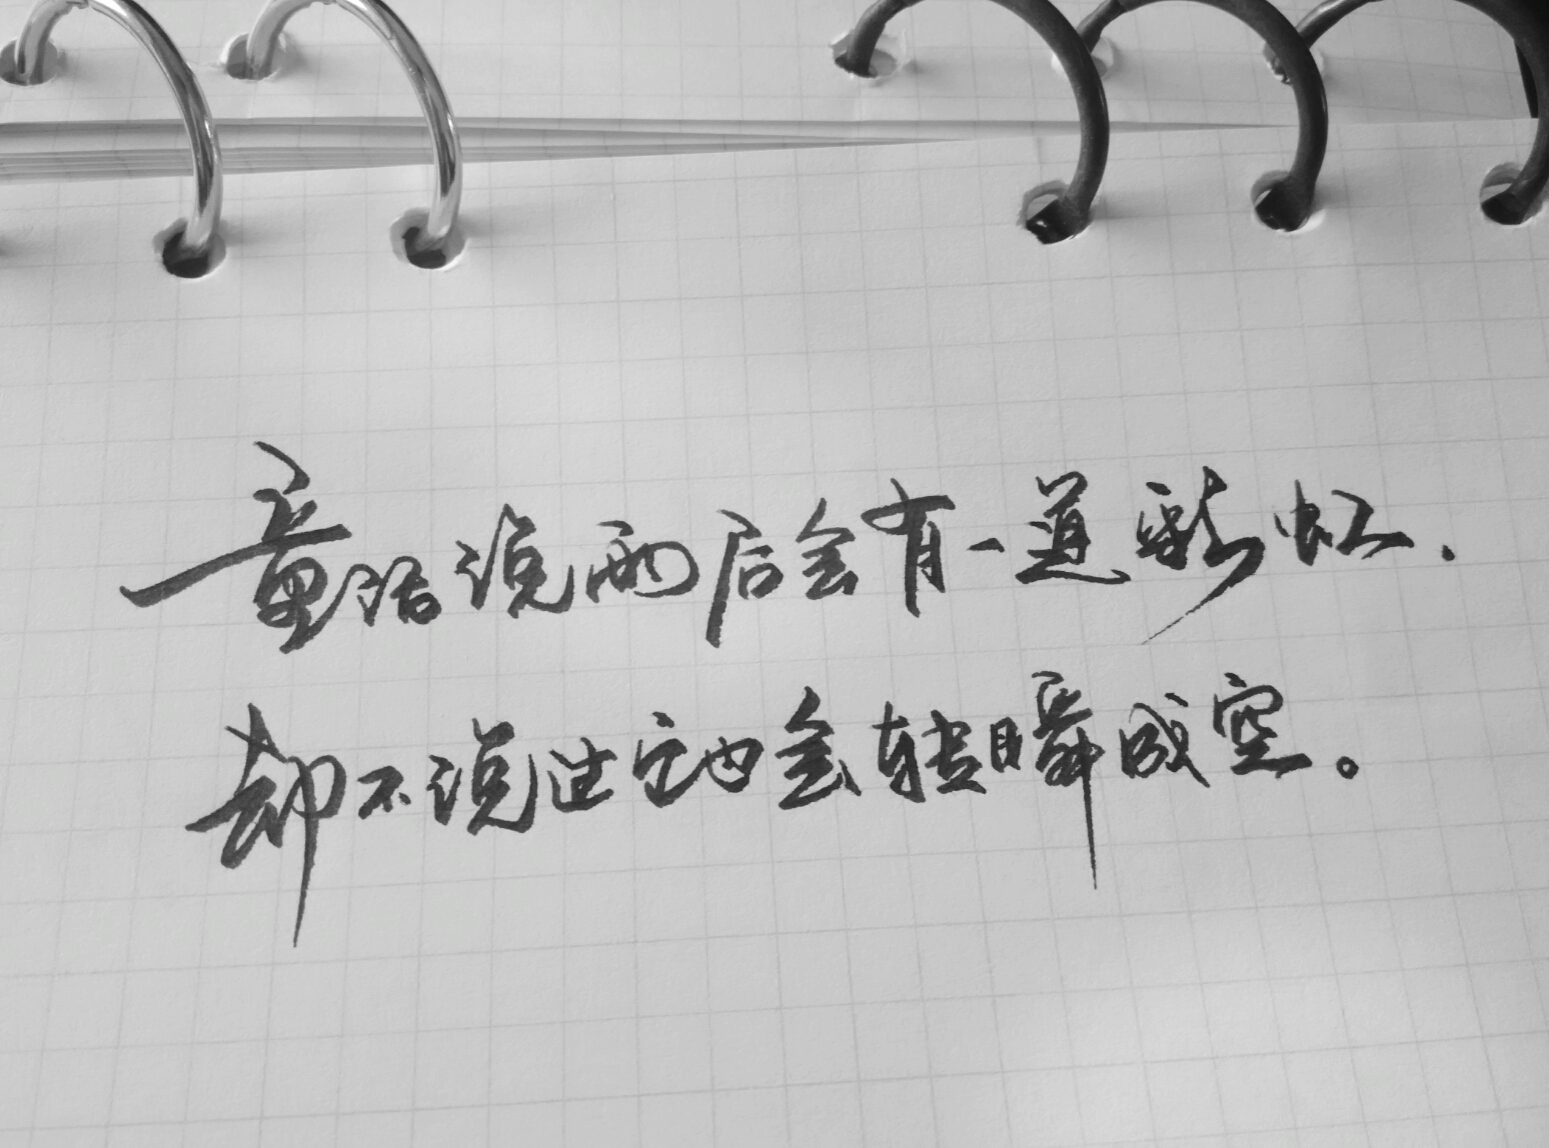 童话说雨后会有一道彩虹.
却不说过它也会转瞬成空。